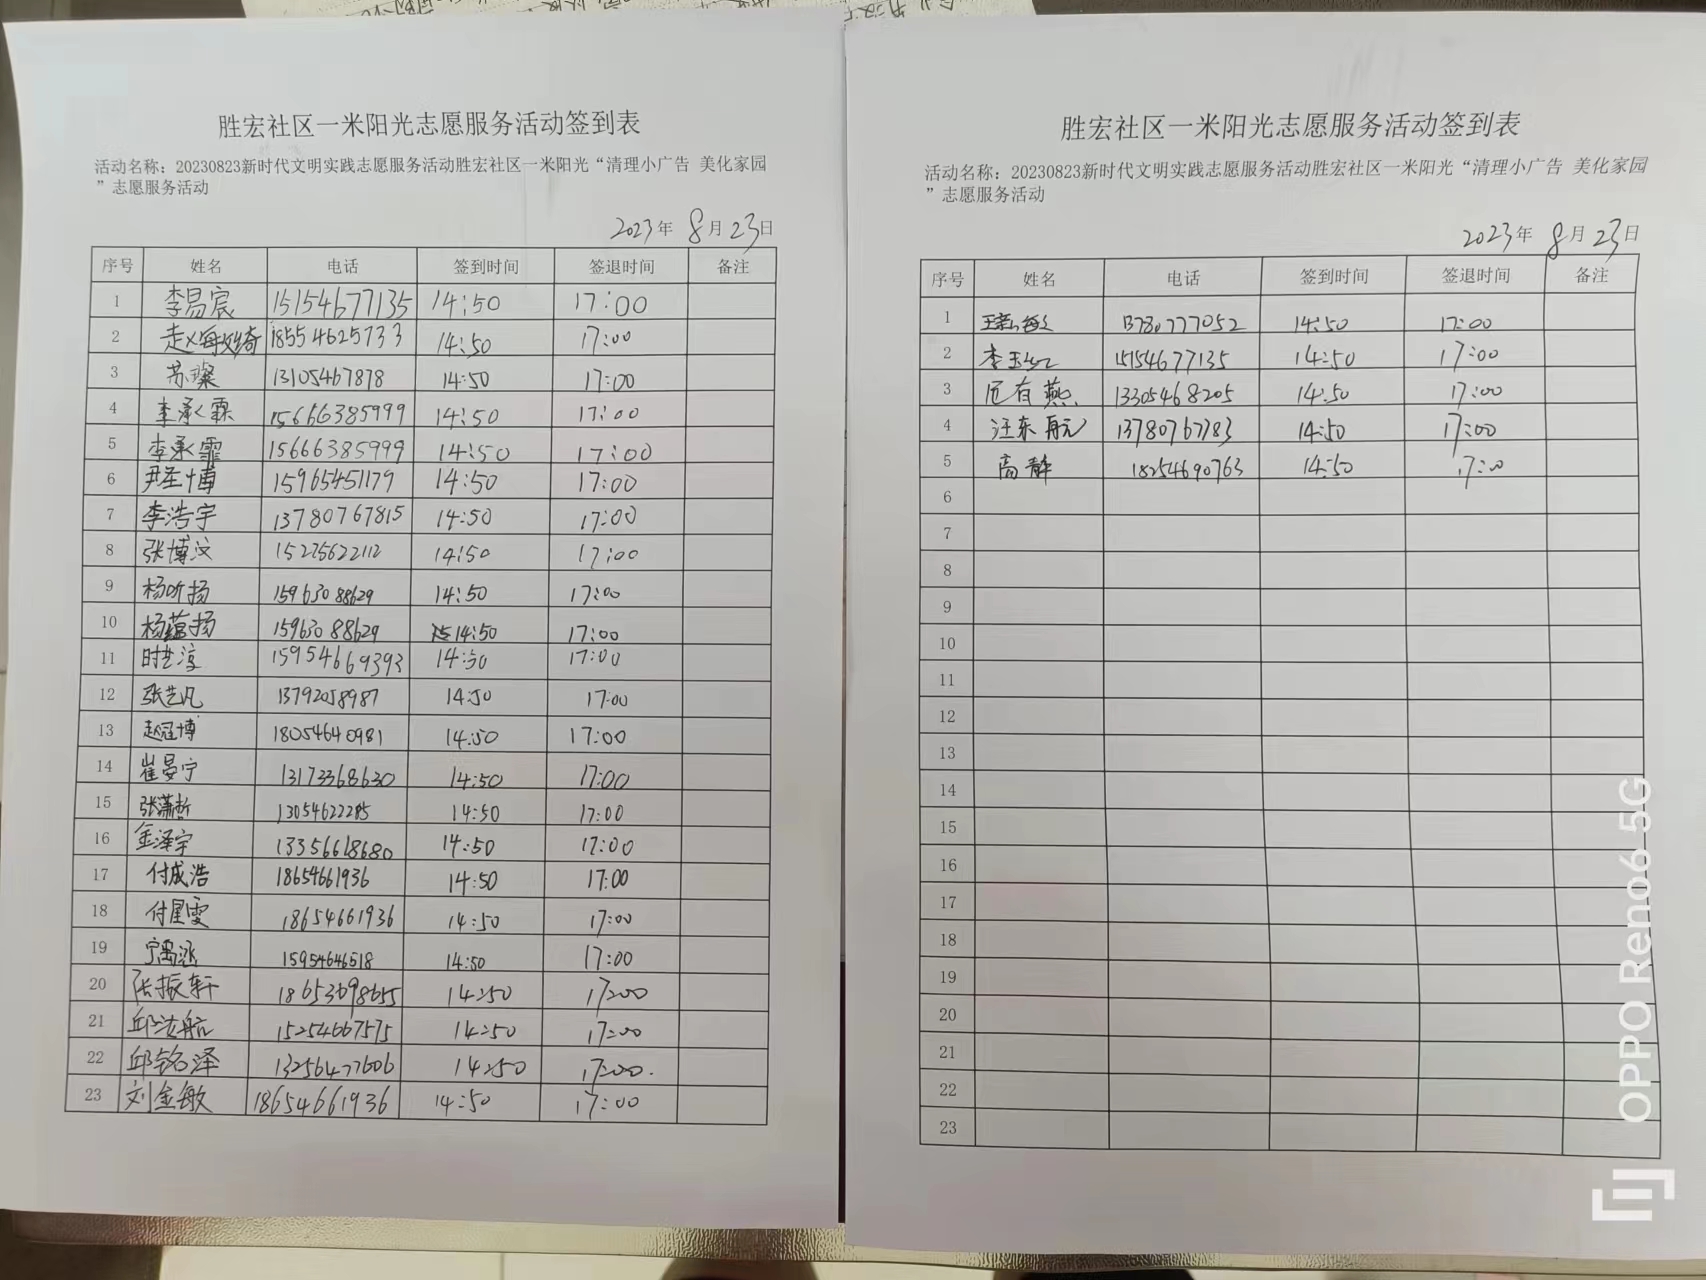 胜宏社区一米阳光志愿服务活动签到表
活动名称：20230823新时代文明实践志愿服务活动胜宏社区一米阳光“清理小广告 美化家园
”志愿服务活动
2023年 8月23日
序号 姓名 电话 签到时间 签退时间 备注
1 李易宸 15154677135 14:50 17:00
2 赵梅妙绮 18554625733 14:50 17:00
3 苏璨 13105467878 14:50 17:00
4 李承霖 15666385999 14:50 17:00
5 李承霏 15666385999 14:50 17:00
6 尹圣博 15965451179 14:50 17:00
7 李浩宇 13780767815 14:50 17:00
8 张博汶 15275622112 14:50 17:00
9 杨昕扬 15963088629 14:50 17:00
10 杨蕴扬 15963088629 14:50 17:00
11 时艺淳 15954669393 14:50 17:00
12 张艺凡 13792058987 14:50 17:00
13 赵冠博 18054640981 14:50 17:00
14 崔晏宁 13173368630 14:50 17:00
15 张潇哲 13054622285 14:50 17:00
16 金泽宇 13356618680 14:50 17:00
17 付成浩 18654661936 14:50 17:00
18 付星雯 18654661936 14:50 17:00
19 宁禹涵 15954646518 14:50 17:00
20 张振轩 18653698655 14:50 17:00
21 邱浩航 15254667575 14:50 17:00
22 邱铭泽 13256477606 14:50 17:00.
23 刘金敏 18654661936 14:50 17:00
胜宏社区一米阳光志愿服务活动签到表
活动名称：20230823新时代文明实践志愿服务活动胜宏社区一米阳光“清理小广告 美化家园
”志愿服务活动
2023年 8月23日
序号 姓名 电话 签到时间 签退时间 备注
1 13780777052 14:50 17:00
2 15154677135 14:50 17:00
3 有燕 13305468205 14:50 17:00
4 汪东航 13780767783 14:50 17:00
5 高静 18254690763 14:50 17:00
6
7
8
9
10
11
12
13
14
15
16
17
18
19
20
21
22
23
OPPO Reno6 5G